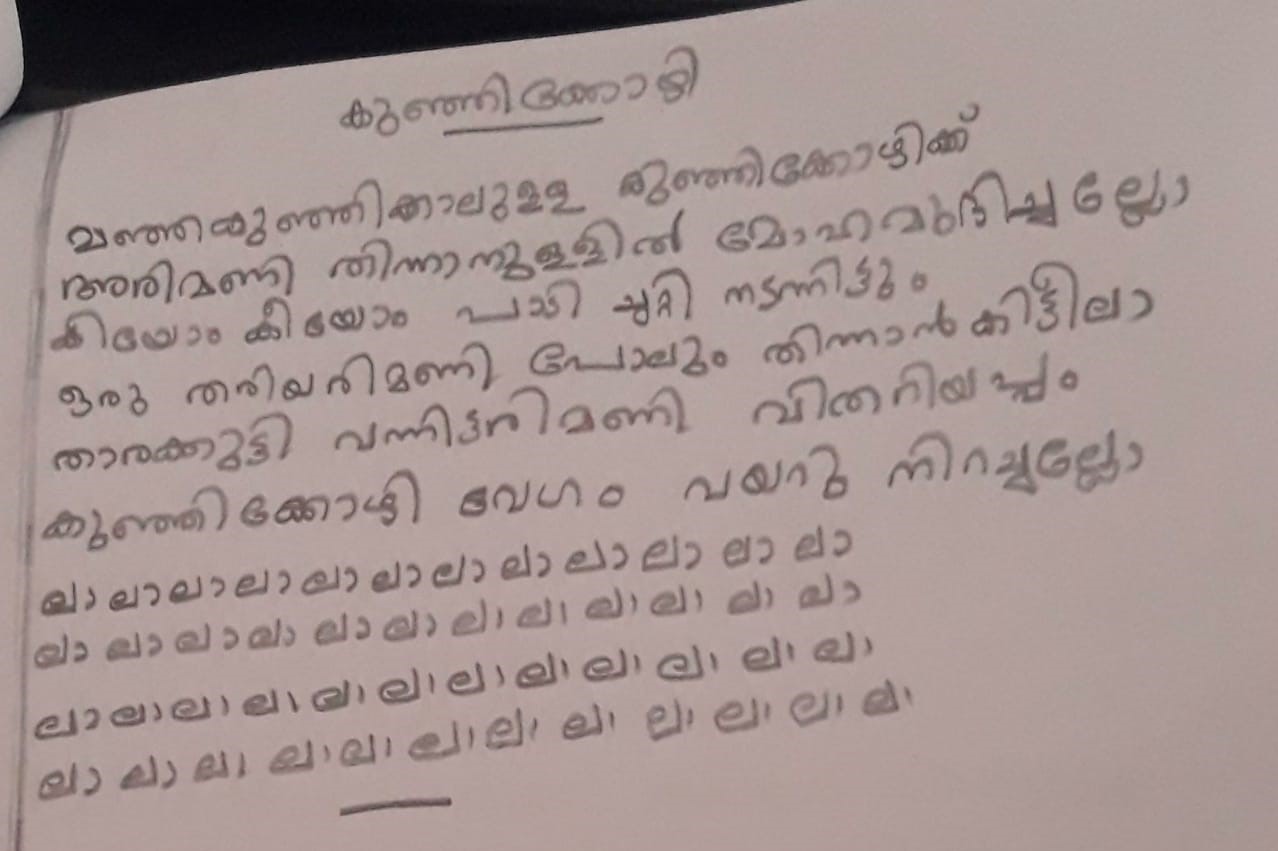 കുഞ്ഞിക്കോഴി
മഞ്ഞക്കുഞ്ഞിക്കാലുള്ള കുഞ്ഞിക്കോഴിക്ക്
അരിമണി തിന്നാനുള്ളിൽ മോഹമുദിച്ചല്ലോ
കിയോം കീയോം പാടി ചുറ്റി നടന്നിട്ടും
ഒരു തരിയരിമണി പോലും തിന്നാൻ കിട്ടീലാ
താരക്കുട്ടി വന്നിട്ടരിമണി വിതറിയപ്പം
കുഞ്ഞിക്കോഴി വേഗം വയറു നിറച്ചല്ലോ
ലാ ലാ ലാ ലാ ലാ ലാ ലാ ലാ ലാ ലാ ലാ ലാ
ലാ ലാ ലാ ലാ ലാ ലാ ലാ ലാ ലാ ലാ ലാ ലാ
ലാ ലാ ലാ ലാ ലാ ലാ ലാ ലാ ലാ ലാ ലാ ലാ
ലാ ലാ ലാ ലാ ലാ ലാ ലാ ലാ ലാ ലാ ലാ ലാ